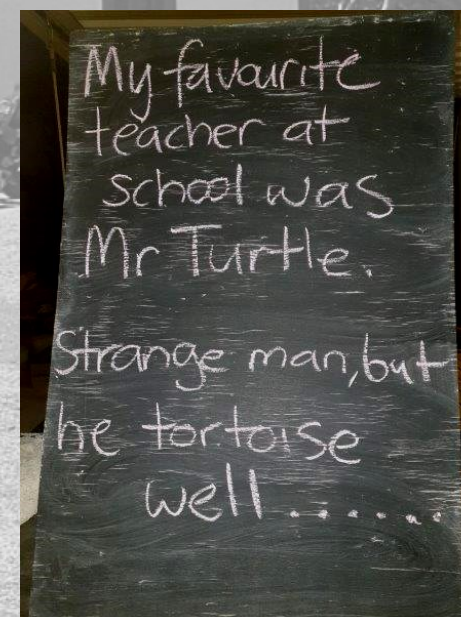 My favourite
teacher at
school was
Mr Turtle.
Strange man, but
he tortoise
well.......